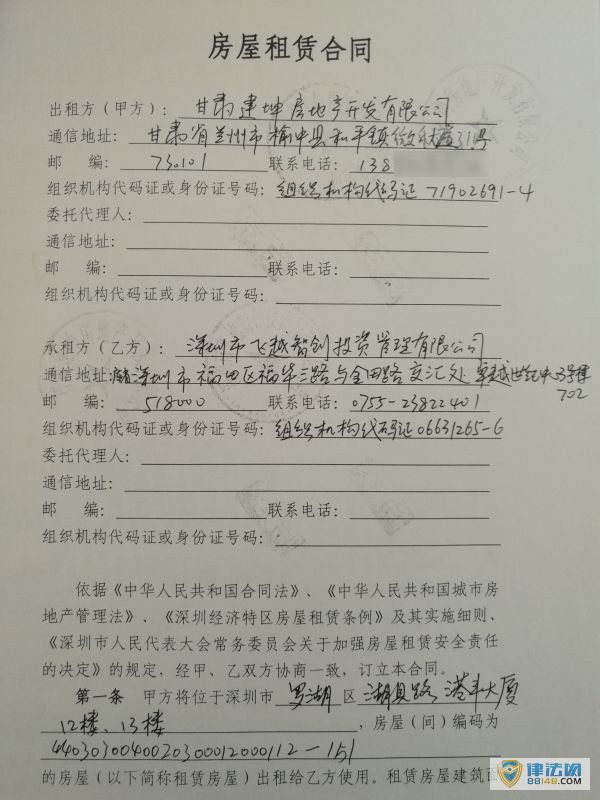 房屋租赁合同
出租方（甲方）：甘肃建坤房地产开发有限公司
通信地址：甘肃省兰州市榆中县和平镇徽 31号
邮 编：730101 联系电话：138
组织机构代码证或身份证号码：组织机构代码证 71902691-4
委托代理人：
通信地址：
邮 编： 联系电话：
组织机构代码证或身份证号码：
承租方（乙方）：深圳市飞越智创投资管理有限公司
通信地址：深圳市福田区福华三路与金田路交汇处卓越世纪中 3号楼
702
邮 编：518000 联系电话：0755-23822401
组织机构代码证或身份证号码：组织机构代码证06631265-6
委托代理人：
通信地址：
邮 编： 联系电话：
组织机构代码证或身份证号码：
依据《中华人民共和国合同法》、《中华人民共和国城市房
地产管理法》、《深圳经济特区房屋租赁条例》及其实施细则、
《深圳市人民代表大会常务委员会关于加强房屋租赁安全责任
的决定》的规定，经甲、乙双方协商一致，订立本合同。
第一条 甲方将位于深圳市 罗湖 区 湖贝路 港丰大厦
12楼、13楼 ，房屋（间）编码为
4403030040020300012000112-151
的房屋（以下简称租赁房屋）出租给乙方使用。租赁房屋建筑面
律法网
88148.com